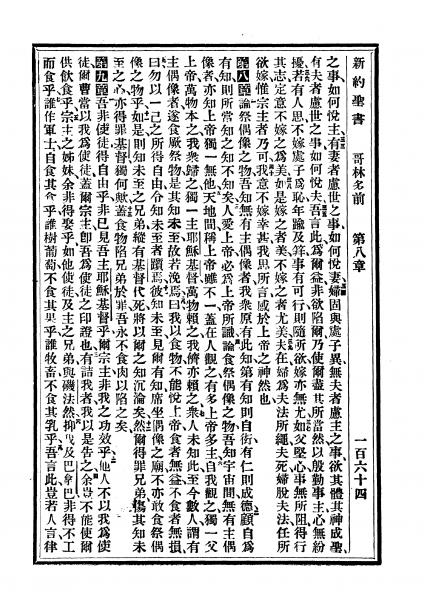 新約聖書　哥林多前　第八章　一百六十四
之事如何悅主、有妻者慮世之事、如何悅妻、婦固與處子異、無夫者慮主之事、欲其體其神成聖、
有夫者慮世之事、如何悅夫、吾言此爲爾益、非欲陷爾、乃使爾盡其所當然、以殷勤事主、心無紛
擾者、有人思不嫁處子爲恥、年踰及笄、事有可行、則隨所欲、嫁亦無尤、如父堅心、事無所阻、得行
其志、定意不嫁之爲美、如是嫁之者美、不嫁之者尤美、夫在、婦爲夫法所繩、夫死、婦脫夫法、任所
欲嫁、惟宗主者乃可、我意不嫁幸甚、我思所言、感於上帝之神然也、
第八章 論祭偶像之物、吾知無有主偶像者、我衆原有此知、第有知則自衒、有仁則成德、顧自爲
有知、則所當知之知不知矣、人愛上帝、必爲上帝所識、論食祭偶像之物、吾知宇宙間無有主偶
像者、亦知上帝獨一無他、天地間稱上帝雖不一、蓋在人觀之、有多上帝多主、自我觀之、獨一父
上帝、萬物本之、我衆歸之、獨一主耶穌基督、萬物賴之、我儕亦賴之、衆人未知此、至今數人謂有
主偶像者、遂食厥祭物、是其知未至、故若浼焉、曰我以食物、不能悅上帝、食者無益、不食者無損、
曰勿以一己之所得自由、令知未至者躓焉、彼知未至、見爾有知、席坐偶像之廟、不亦敢食祭偶
像之物乎、如是則知未至之兄弟、縱有基督代死、將以爾之知沉淪矣、然爾得罪兄弟、傷其知未
至之心、亦得罪基督、獨何歟、蓋食物陷兄弟於罪、吾永不食肉以陷之矣、
第九章 吾非使徒得自由乎、非已見吾主耶穌基督乎、爾宗主、非我之功效乎、他人不以我爲使
徒、爾曹當以我爲使徒、蓋爾宗主、卽吾爲使徒之印證也、有詰者、我以是告之、余豈不能使爾
供飲食乎、宗主之姊妹、余非得娶乎、如他使徒、及主之兄弟、與磯法然、抑我及巴拿巴、非得不工
而食乎、誰作軍士、自食其食乎、誰樹葡萄、不食其果乎、誰牧畜、不食其乳乎、吾言此、豈若人言、律